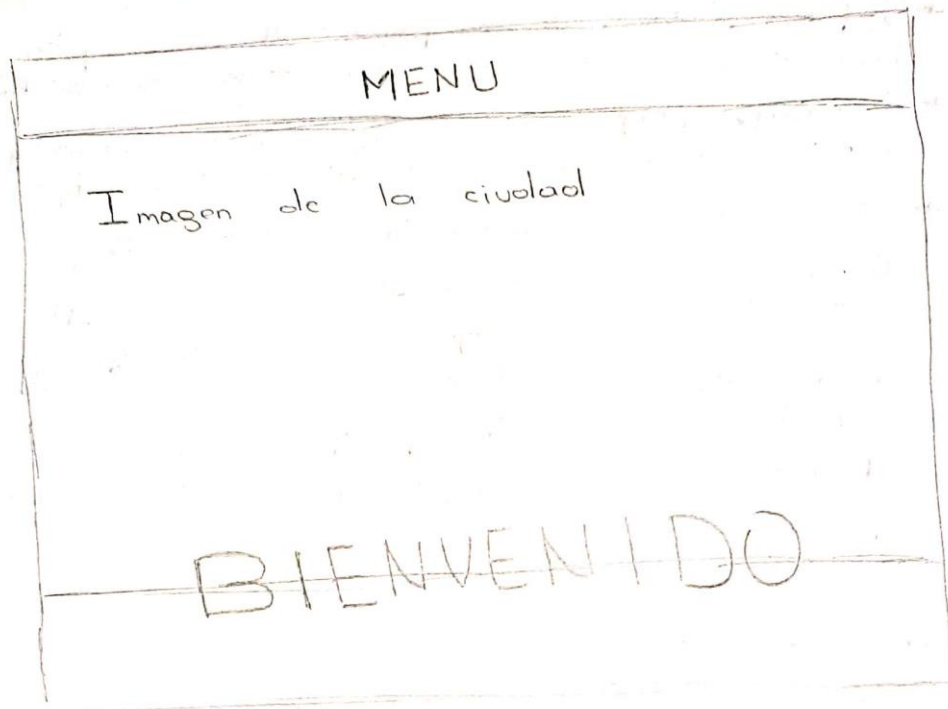 MENU
Imagen de la ciudad
BIENVENIDO